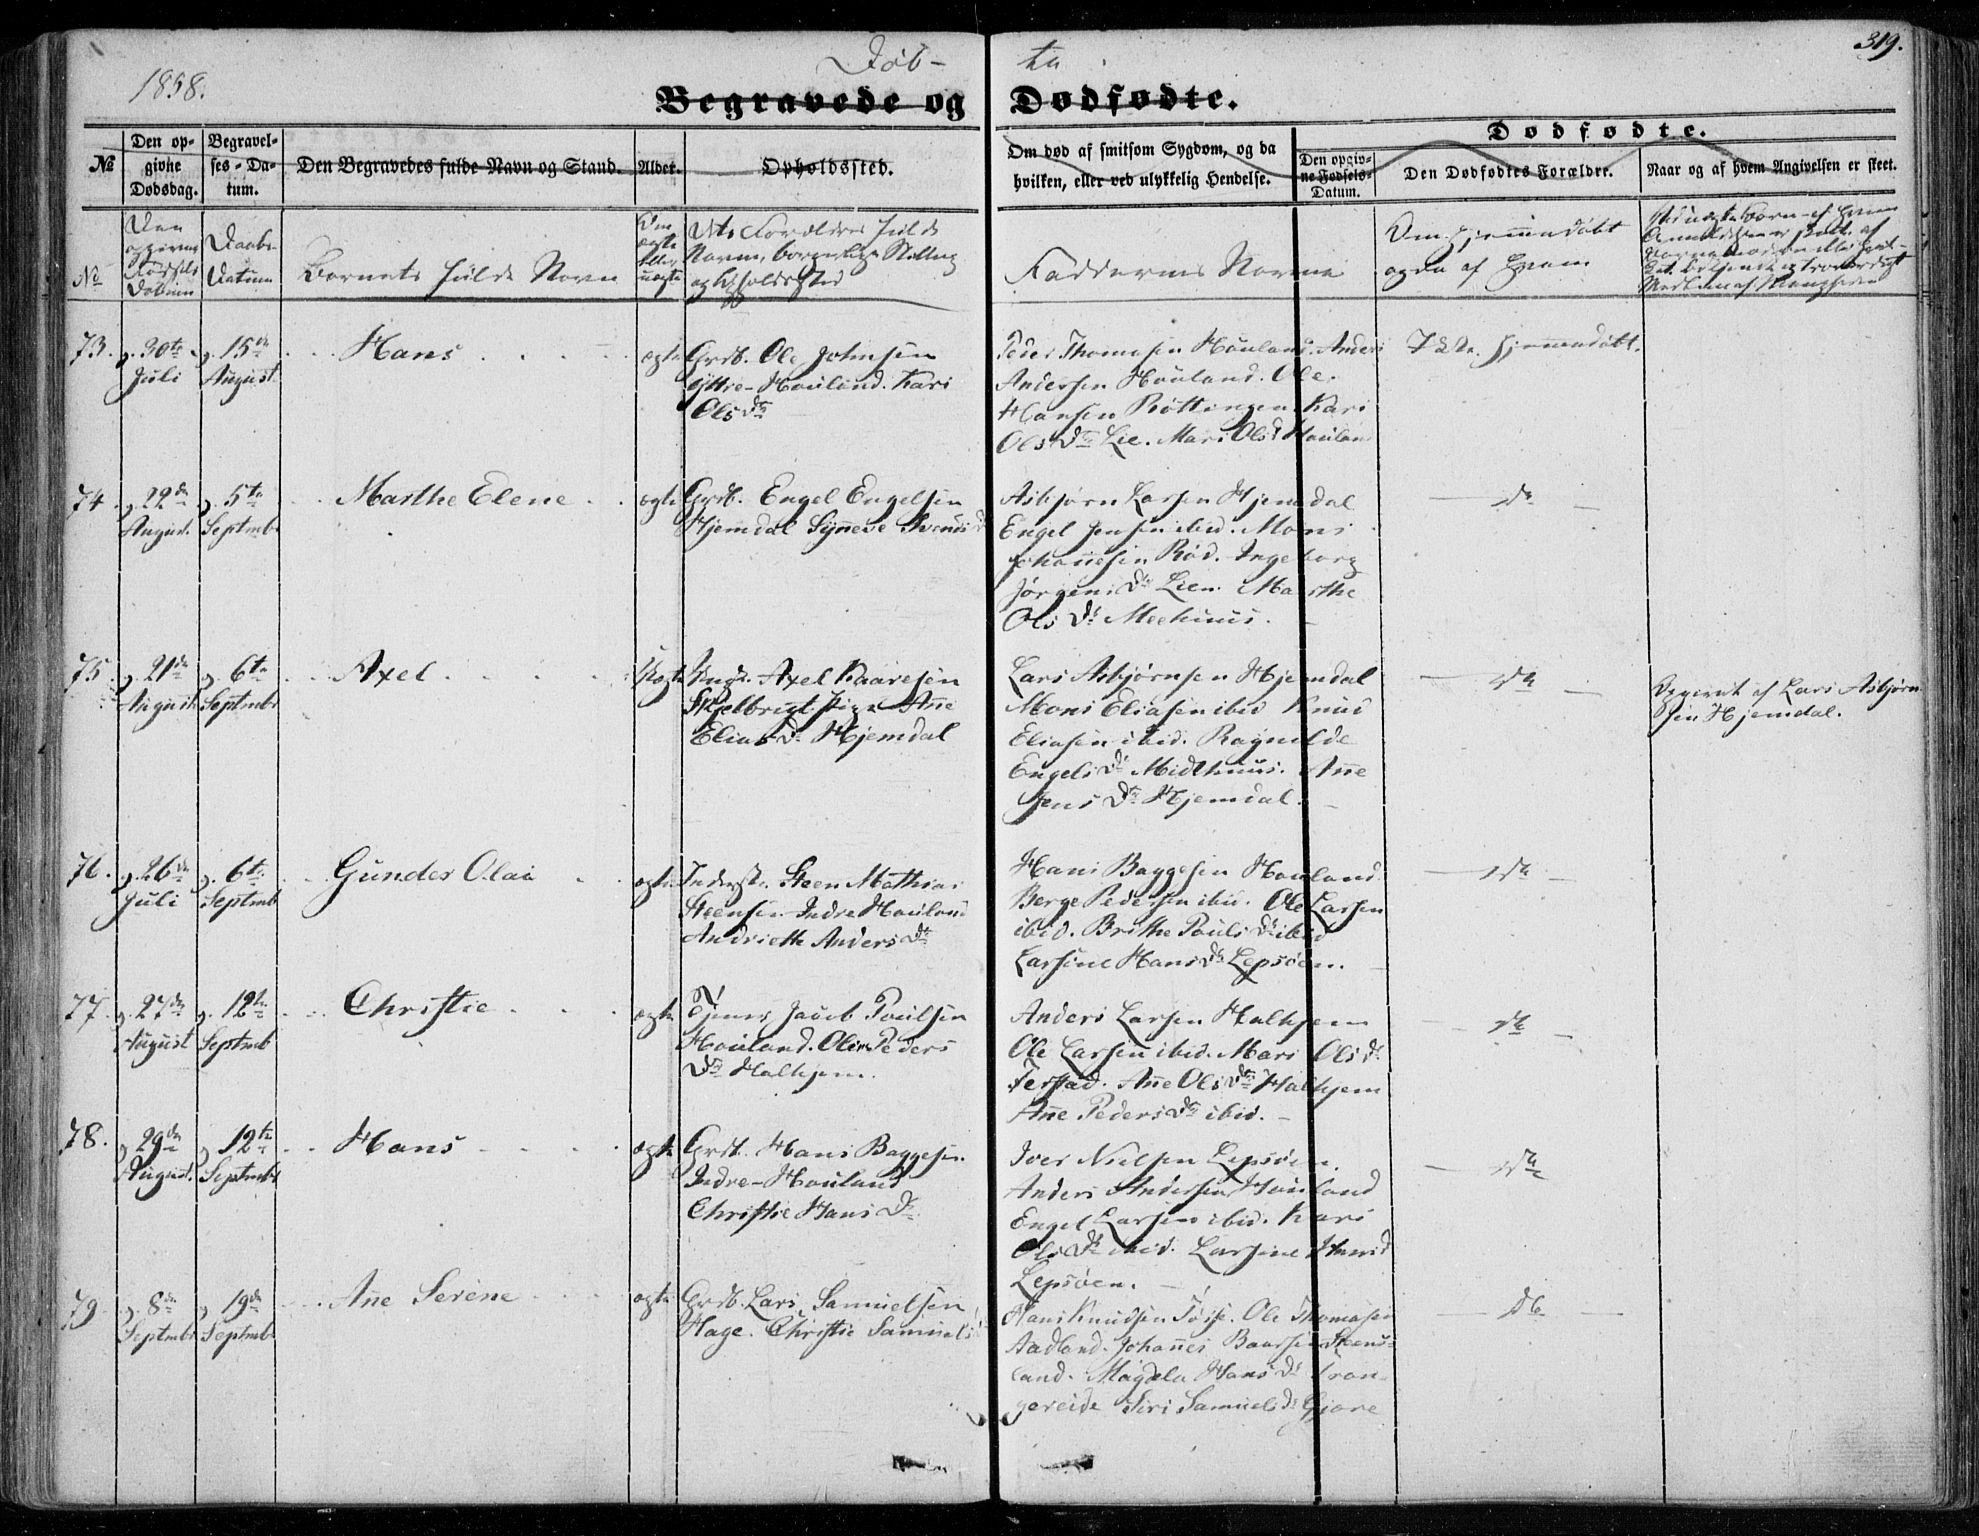 1858.
Døb-
te
319.
Begravede og Dødfødte.
No
Den op-
givne
Dødsdag.
Begravel-
ses-Da-
tum.
Den Begravedes fulde Navn og Stand.
Alder.
Opholdssted.
Om død af smitsom Sygdom, og da
hvilken, eller ved ulykkelig Hendelse.
Dødfødte.
Den opgiv-
ne Fødsels-
Datum.
Den Dødfødtes Forældre.
Naar og af hvem Angivelsen er skeet.
No
Den
opgivne
Fødsels
Datum
Daabs-
Datum
Barnets fulde Navn
Om
ægte
eller
uægte
Dets Forældres fulde
Navne, borgerlige Stilling
og Opholdssted
Faddernes Navne
Om hjemmedøbt
og da af hvem
73. d. 30te Juli
d. 15de August
Hans
ægte
Grdb. Ole Johnsen
Yttre-Houland. Kari
Ols Dtr
Peder Thomasen Houland. Anders
Andersen Houland. Ole
Hansen Røttingen. Kari
Ols Dtr Lie. Mari Olsd Houland
Ikke hjemmedøbt.
74. d. 22de August.
d. 5te Septmbr
Marthe Elene
ægte
Grdb. Engel Engelsen
Hjemdal Synneve Svendsd
Asbjørn Larsen Hjemdal
Engel Jensen ibid. Mons
Johannesen Rød. Ingeborg
Jørgens Dtr Lien. Marthe
Ols Dtr
do
75 d. 21de August
d. 6te Septmbr
Axel
Uægte
Ungk. Axel Kaaresen
Skjelbreid. Pige Anne
Elias Dr Hjemdal
Lars Asbjørnsen Hjemdal
Mons Eliasen ibid Knud
Eliasen ibid. Ragnilde
Engels Dr Midthuus. Anne
Jens Dtr Hjemdal.
do
Opgivet af Lars Asbjørn-
sen Hjemdal.
76. d. 26de Juli
d. 6te Septmb
Gunder Olai
ægte
Inderst. Steen Mathias
Steensen Indre Houland
Andriethe Anders Dtr
Hans Baggesen Houland
Berge Pedersen ibid. Ole Larsen
ibid. Brithe Pouls Dr ibid
Larsine Hans Dtr Lepsøen.
do
77. d. 27de August
d. 12te Septmb
Christie
ægte
Tjener Jacob Poulsen
Houland. Oline Peders
Dtr Halhjem.
Anders Larsen Halhjem
Ole Larsen ibid. Mari Ols Dr
Ferstad. Anne Ols Dtr Halhjem
Anne Peders Dtr ibid.
do
78. d. 29de August.
d. 12te Septmbr
Hans
ægte
Grdb. Hans Baggesen
Indre-Houland
Christie Hans Dr
Iver Nielsen Lepsøen.
Anders Andersen Houland
Engel Larsen ibid. Kari
Ols Dr ibid. Larsine Hansd
Lepsøen.
do
79. d. 8de Septmbr
d. 19de Septmbr
Anne Serene
ægte
Grdb. Lars Samuelsen
Hage. Christie Samuelsd
Hans Knudsen Tøsse. Ole Thomasen
Aadland. Johannes Baarsen Steens-
land. Magdela Hans Dr Tran-
gereide Siri Samuels Dr Gjøre
do